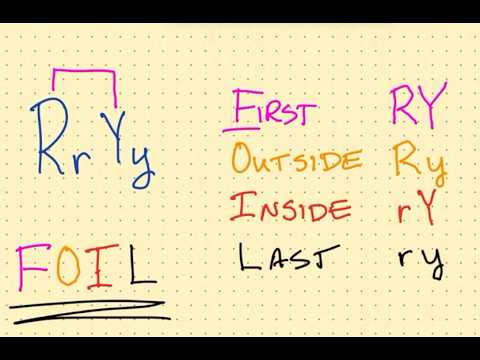 RrYy
FOIL
FIRST RY
OUTSIDE Ry
INSIDE rY
LAST ry